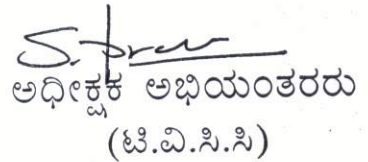 ಅಧೀಕ್ಷಕ ಅಭಿಯಂತರರು
(ಟಿ.ವಿ.ಸಿ.ಸಿ)